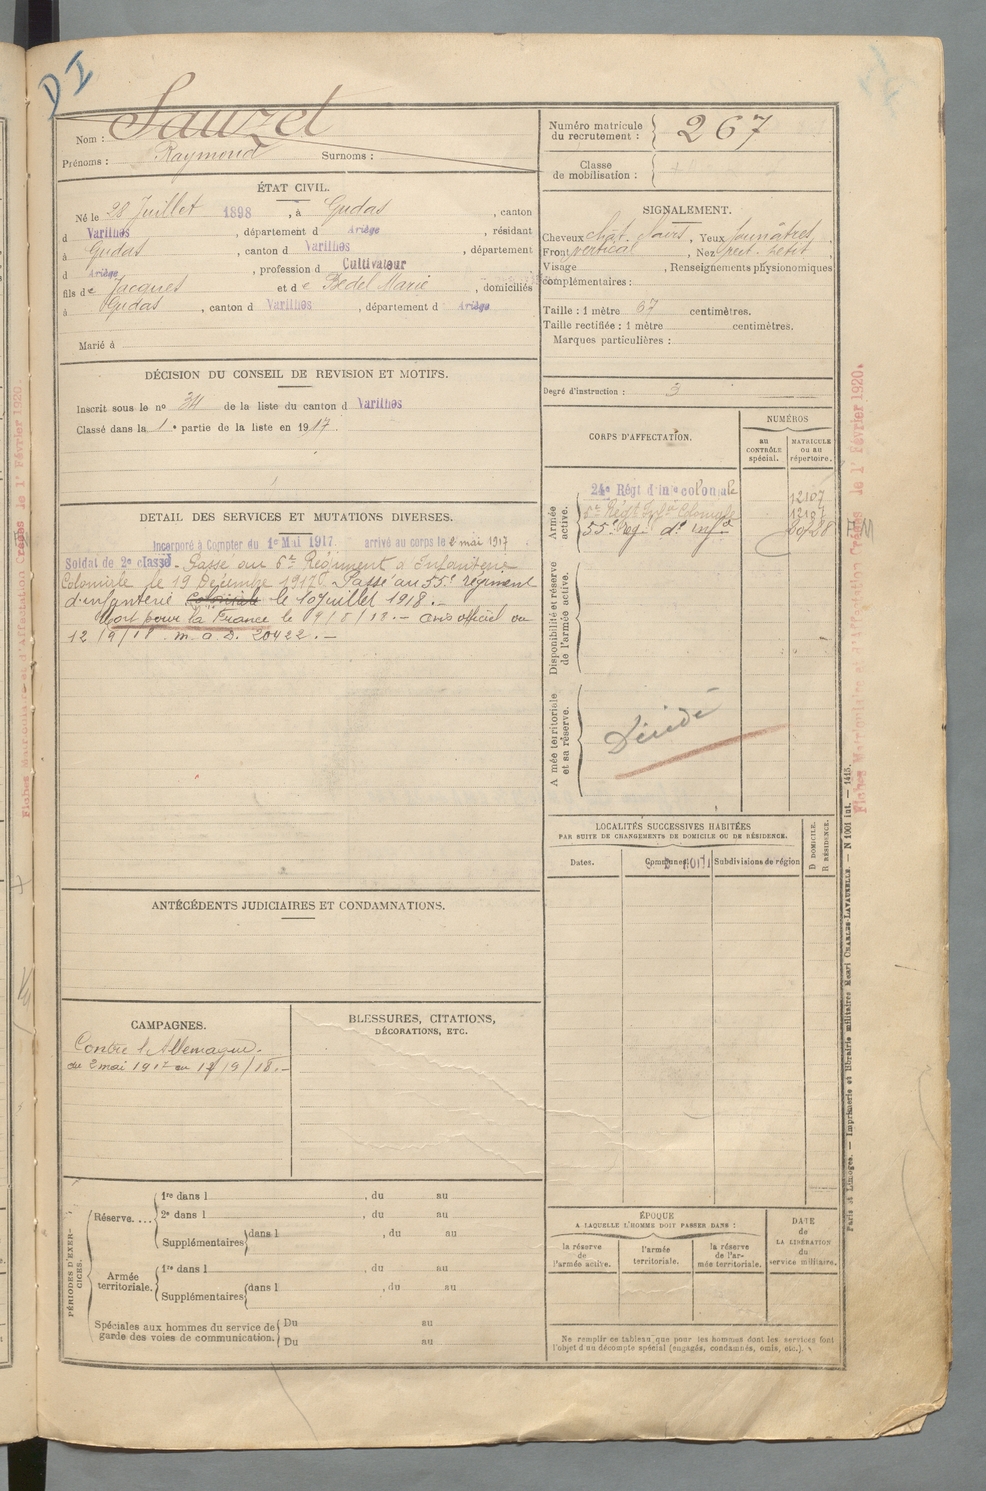 D I
Nom : Sauzet
Prénoms : Raymond Surnoms :
Numéro matricule
du recrutement : 267
Classe
de mobilisation :
ÉTAT CIVIL.
Né le 28 Juillet 1898, à Gudas, canton
d Varilhes, département d Ariège, résidant
à Gudas, canton d Varilhes, département
d Ariège, profession d Cultivateur
fils de Jacques et de Bedel Marie, domiciliés
à Gudas, canton d Varilhes, département d Ariège
Marié à
SIGNALEMENT.
Cheveux chât. , Yeux jaunâtres,
Front vertical, Nez rect. petit,
Visage , Renseignements physionomiques
complémentaires :
Taille : 1 mètre 67 centimètres.
Taille rectifiée : 1 mètre centimètres.
Marques particulières :
Degré d'instruction : 3
DÉCISION DU CONSEIL DE REVISION ET MOTIFS.
Inscrit sous le nº 34 de la liste du canton d Varilhes
Classé dans la 1e partie de la liste en 1917.
DETAIL DES SERVICES ET MUTATIONS DIVERSES.
Incorporé à Compter du 1er Mai 1917. arrivé au corps le 2 mai 1917
Soldat de 2e classe. Passé au 6e Régiment d'Infanterie
Coloniale le 19 Décembre 1917. Passé au 55e régiment
d'infanterie Coloniale le 10 juillet 1918.-
Mort pour la France le 9/8/18.- avis officiel du
12/9/18. m. a. D. 20422.-
CORPS D'AFFECTATION.
NUMÉROS
au
CONTRÔLE
spécial.
MATRICULE
ou au
répertoire.
Armée
active.
24e Régt d'infie coloniale 12107
6e Régt Infie Coloniale
55e rég. d'infie
Disponibilité et réserve
de l'armée active.
Armée territoriale
et sa réserve.
Décédé
LOCALITÉS SUCCESSIVES HABITÉES
PAR SUITE DE CHANGEMENTS DE DOMICILE OU DE RÉSIDENCE.
Dates. Communes. Subdivisions de région
D DOMICILE.
R RÉSIDENCE.
ANTÉCÉDENTS JUDICIAIRES ET CONDAMNATIONS.
CAMPAGNES.
Contre l'Allemagne.
du 2 mai 1917 au 12/9/18.-
BLESSURES, CITATIONS,
DÉCORATIONS, ETC.
PÉRIODES D'EXER-
CICES.
Réserve....
1re dans l , du au
2e dans l , du au
Supplémentaires dans l , du au
Armée
territoriale.
1re dans l , du au
Supplémentaires dans l , du au
Spéciales aux hommes du service de
garde des voies de communication.
Du au
Du au
ÉPOQUE
A LAQUELLE L'HOMME DOIT PASSER DANS :
la réserve
de
l'armée active.
l'armée
territoriale.
la réserve
de l'ar-
mée territoriale.
DATE
de
LA LIBÉRATION
du
service militaire.
Ne remplir ce tableau que pour les hommes dont les services font
l'objet d'un décompte spécial (engagés, condamnés, omis, etc.).
Fiches Matriculaire et d'Affectation Créées le 1er Février 1920.
Fiches Matriculaire et d'Affectation Créées le 1er Février 1920.
Paris et Limoges. — Imprimerie et librairie militaires Henri CHARLES-LAVAUZELLE. — N 1001 int. — 1415.